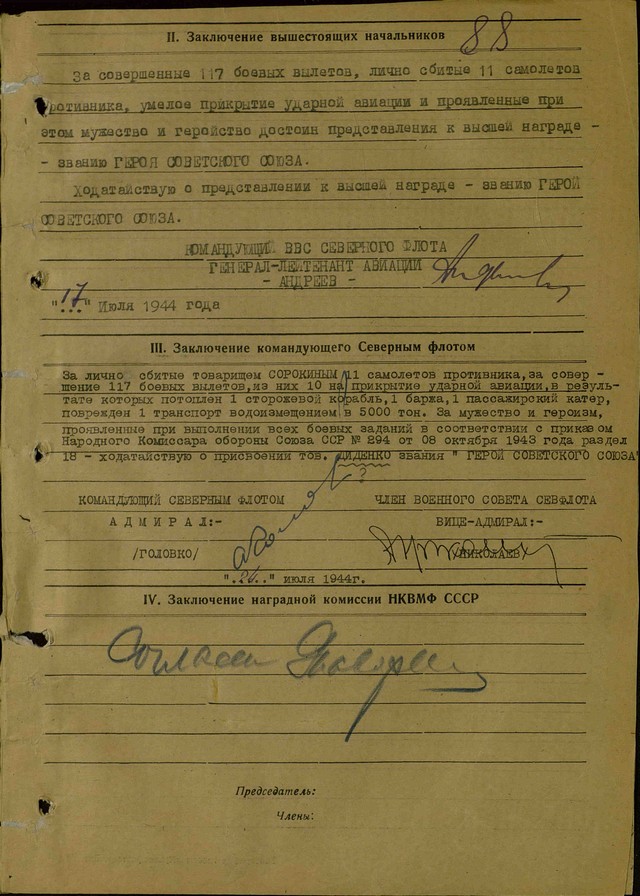 88
II. Заключение вышестоящих начальников
За совершенные 117 боевых вылетов, лично сбитые 11 самолетов
противника, умелое прикрытие ударной авиации и проявленные при
этом мужество и геройство достоин представления к высшей награде -
- званию ГЕРОЯ СОВЕТСКОГО СОЮЗА.
Ходатайствую о представлении к высшей награде - званию ГЕРОЙ
СОВЕТСКОГО СОЮЗА.
КОМАНДУЮЩИЙ ВВС СЕВЕРНОГО ФЛОТА
ГЕНЕРАЛ-ЛЕЙТЕНАНТ АВИАЦИИ
- АНДРЕЕВ -
"17" Июля 1944 года
III. Заключение командующего Северным флотом
За лично сбитые товарищем СОРОКИНЫМ 11 самолетов противника, за совер -
шение 117 боевых вылетов, из них 10 на прикрытие ударной авиации, в резуль-
тате которых потоплен 1 сторожевой корабль, 1 баржа, 1 пассажирский катер,
поврежден 1 транспорт водоизмещением в 5000 тон. За мужество и героизм,
проявленные при выполнении всех боевых заданий в соответствии с приказом
Народного Комиссара обороны Союза ССР № 294 от 08 октября 1943 года раздел
18 - ходатайствую о присвоении тов. ДИДЕНКО звания " ГЕРОЙ СОВЕТСКОГО СОЮЗА"
?
КОМАНДУЮЩИЙ СЕВЕРНЫМ ФЛОТОМ ЧЛЕН ВОЕННОГО СОВЕТА СЕВФЛОТА
АДМИРАЛ:- ВИЦЕ-АДМИРАЛ:-
/ГОЛОВКО/ /НИКОЛАЕВ/
июля 1944г.
IV. Заключение наградной комиссии НКВМФ СССР
Председатель:
Члены: